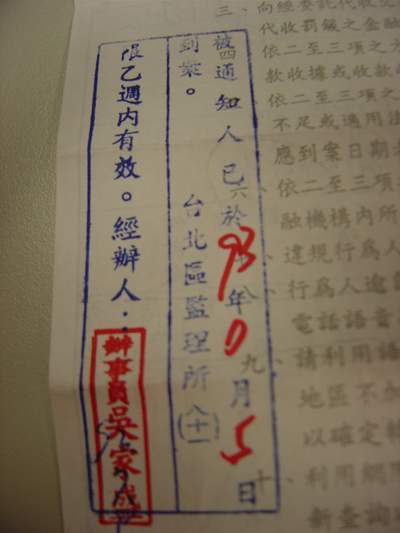 被通知人已於93年0月5日
到案。 台北區監理所(八十一)
限乙週內有效。經辦人：
辦事員吳家盛
三、向經委託代收交
代收罰鍰之金融
四、依二至三項之方
款收據或收款
依二至三項之
不足或適用法
應到案日期
六、依二至三項
融機構內所
、違規行為人
八、行為人逾
電話語音
九、請利用語
地區不加
以確定轉
十、利用網際
新查詢